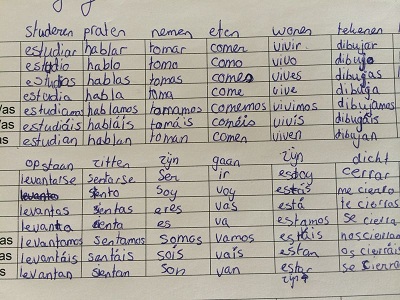 studeren praten nemen eten wonen tekenen
estudiar hablar tomar comer vivir dibujar
estudio hablo tomo como vivo dibujo
estudias hablas tomas comes vives dibujas
estudia habla toma come vive dibuja
/as estudiamos hablamos tomamos comemos vivimos dibujamos
/as estudiáis habláis tomáis coméis vivís dibujáis
s estudian hablan toman comen viven dibujan
opstaan zitten zijn gaan zijn dicht
levantarse sentarse ser ir estoy cerrar
levanto siento soy voy estás me cierro
levantas sientas eres vas está te cierras
levanta sienta es va estamos se cierra
as levantamos sentamos somos vamos estáis nos cierran
as levantáis sentáis sois vais estan os cierráis
s levantan sientan son van estar se cierran
zijn